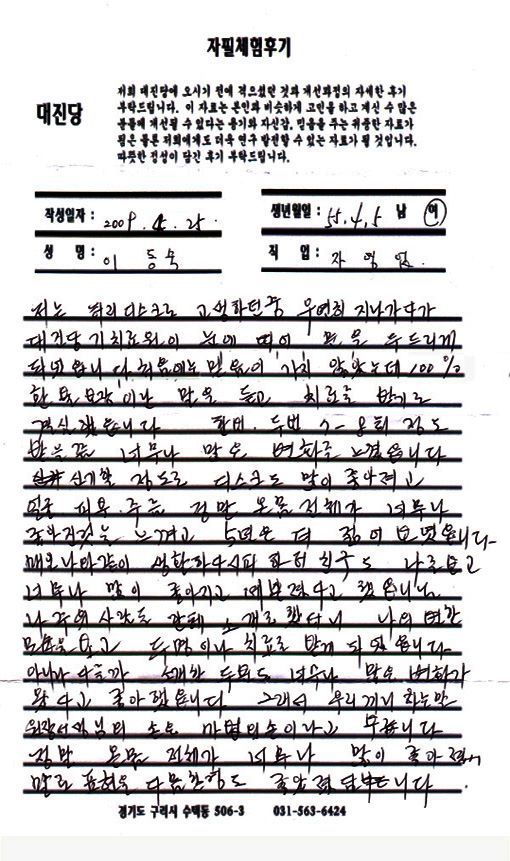 자필체험후기
대진당
저희 대진당에 오시기 전에 겪으셨던 것과 개선과정의 자세한 후기
부탁드립니다. 이 자료는 본인과 비슷하게 고민을 하고 계신 수 많은
분들께 개선될 수 있다는 용기와 자신감, 믿음을 주는 귀중한 자료가
됨은 물론 저희에게도 더욱 연구 발전할 수 있는 자료가 될 것입니다.
따뜻한 정성이 담긴 후기 부탁드립니다.
작성일자 : 2009. 4. 25.
생년월일 : 55. 4. 5 남 여
성 명 : 이 동숙
직 업 : 자 영 업.
저는 허리디스크로 고생하던중 우연히 지나가다가
대진당 기치료원이 눈에 띄어 문을 두드리게
되었읍니다 처음에는 믿음이 가지 않았는데 100%
한 목 보장이란 말을 듣고 치료를 받기로
결심했읍니다 한번. 두번 7-8회 정도
받을쯤 너무나 많은 변화를 느꼈읍니다
신기할 정도로 디스크도 많이 좋아졌고
얼굴 피부. 주름 정말 온몸 전체가 너무나
좋아진것을 느끼고 5년은 더 젊어 보였읍니다-
매일 나와같이 생활하다시피 하던 친구도 나를 보고
너무나 많이 좋아지고 예뻐졌다고 했읍니다
나 주위 사람들 간에 소개로 했더니 나의 변한
모습을 보고 두명이나 치료를 받게 되었읍니다
아니나 다를까 소개한 두분도 너무나 많은 변화가
왔다고 좋아했읍니다 그래서 우리끼니 하는말
원장선생님의 손은 마법의손이라고 부릅니다
정말 온몸 전체가 너무나 많이 좋아져서
말로 표현을 다 못할정도 좋아졌답니다.
경기도 구리시 수택동 506-3 031-563-6424